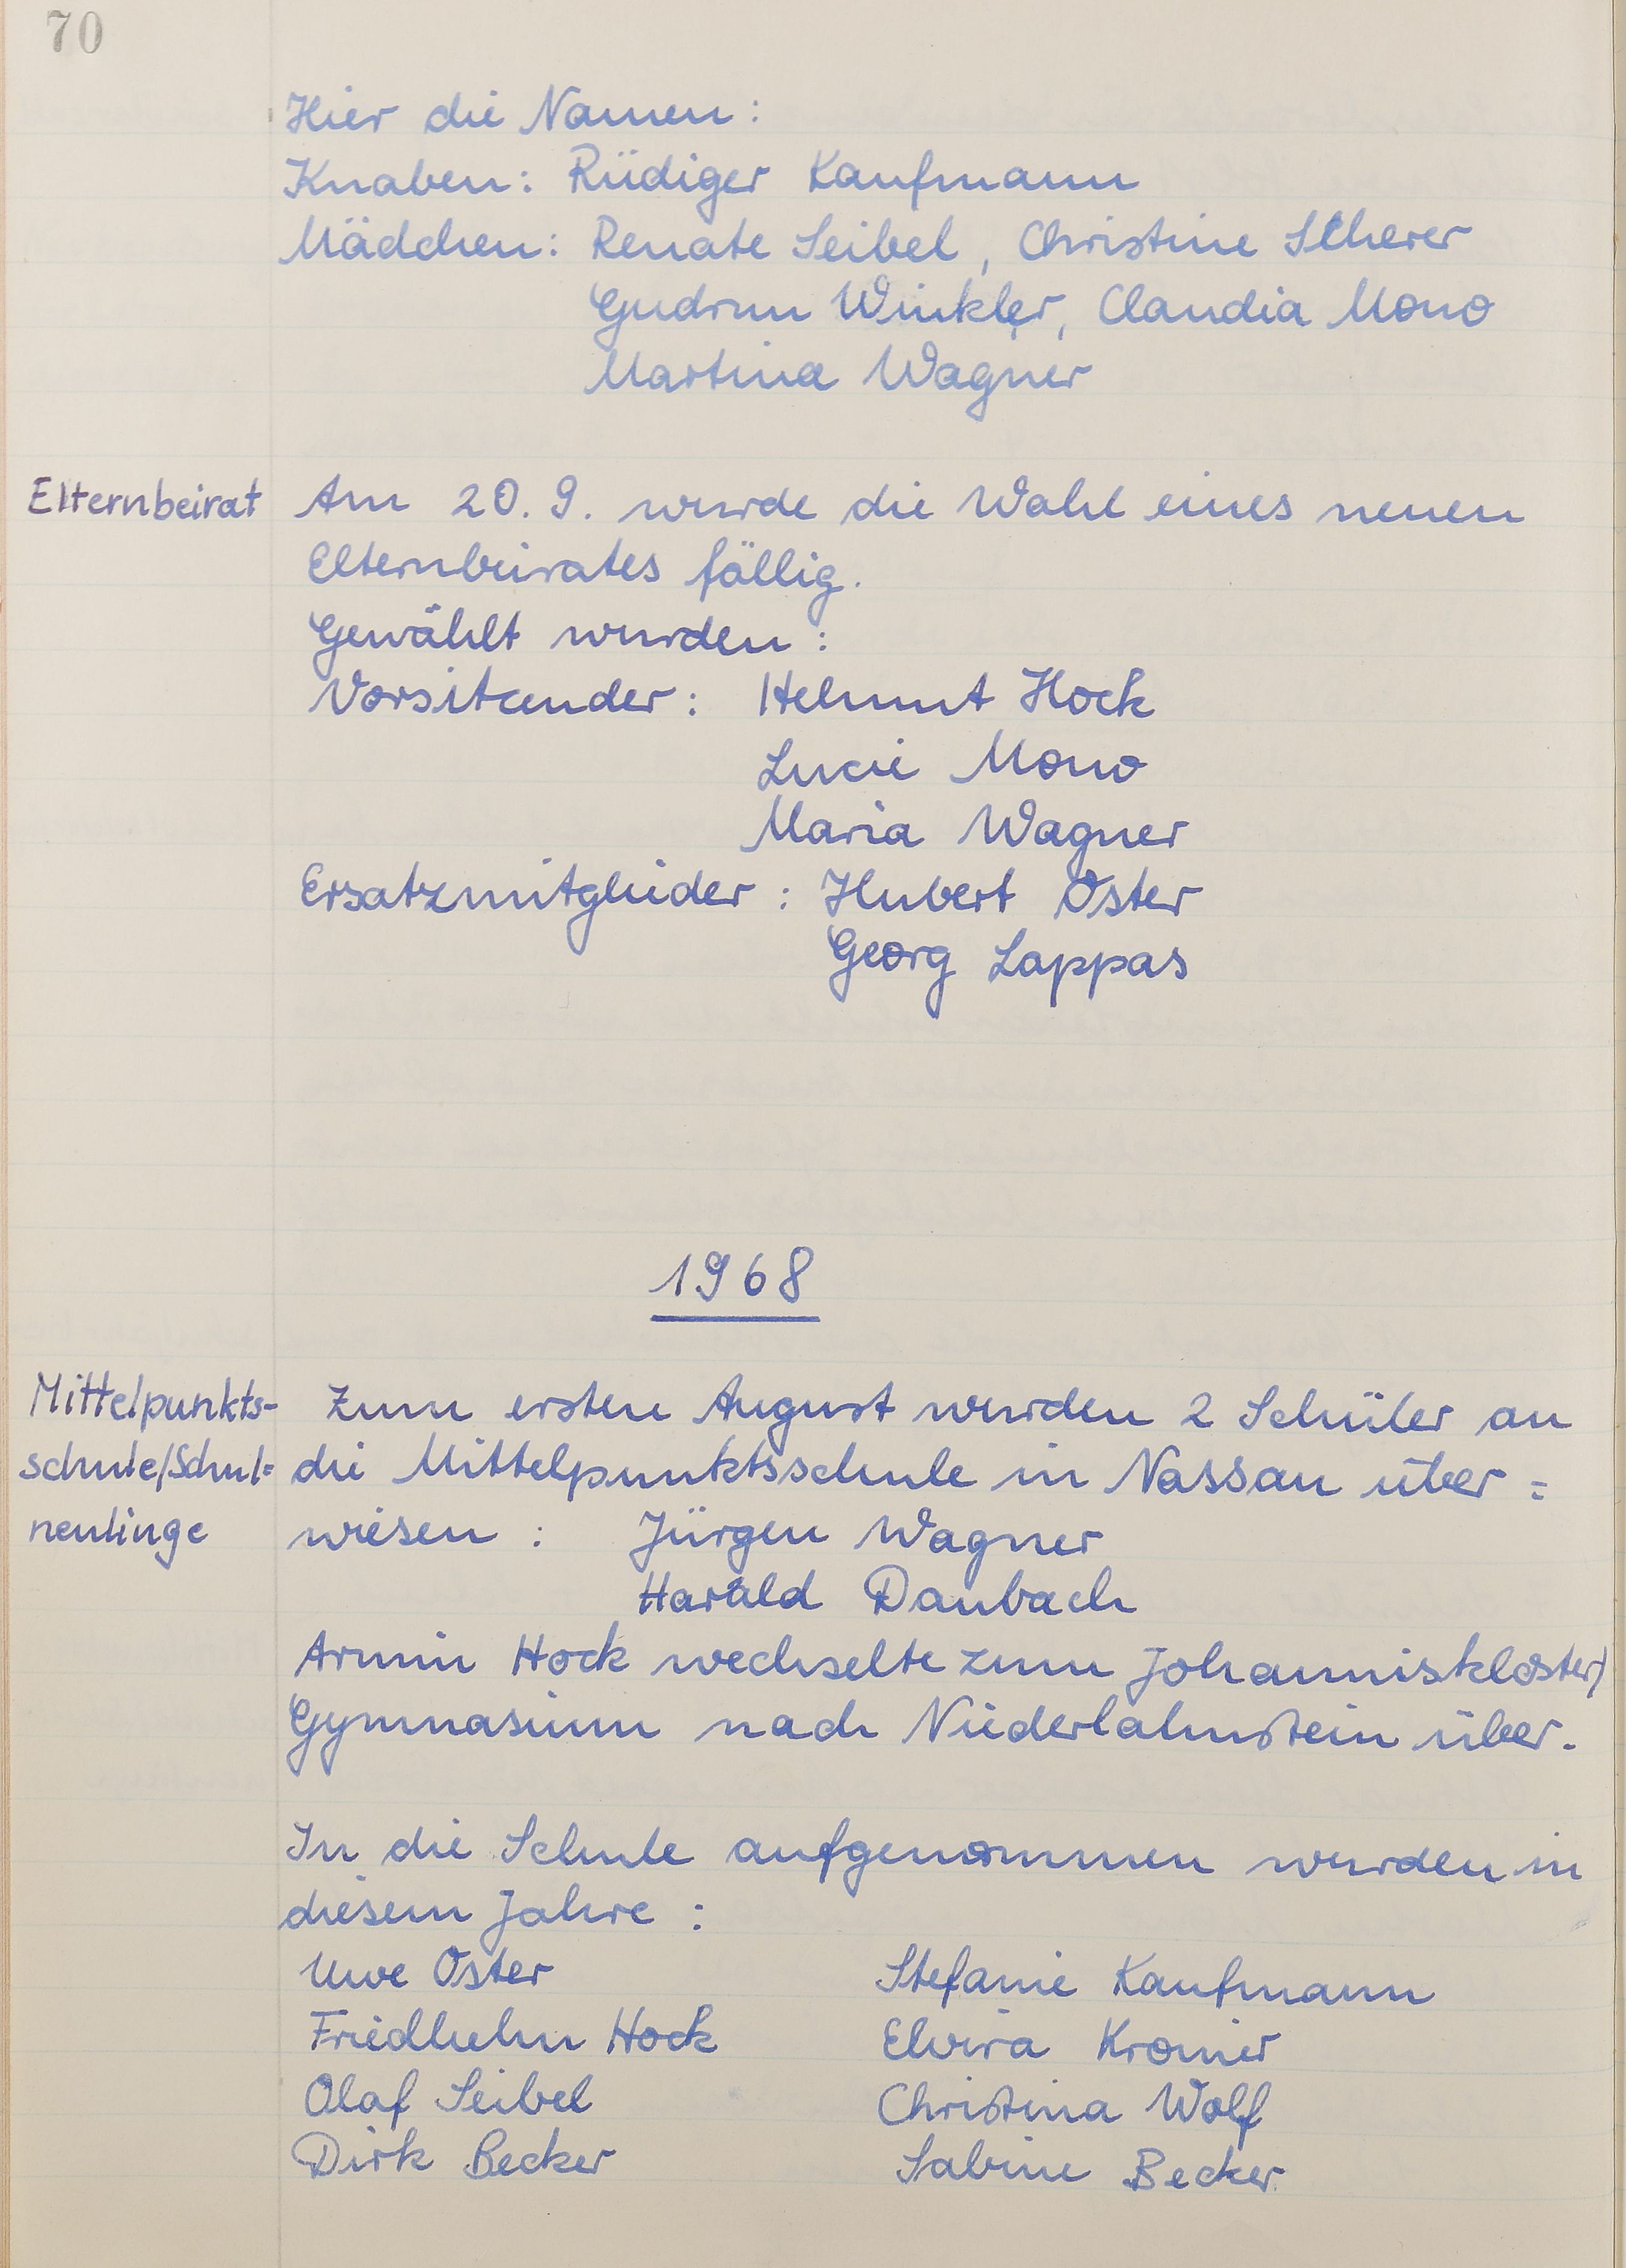 70
Hier die Namen:
Knaben: Rüdiger Kaufmann
Mädchen: Renate Seibel, Christine Scherer
Gudrun Winkler, Claudia Mono
Martina Wagner
Elternbeirat
Am 20. 9. wurde die Wahl eines neuen
Elternbeirates fällig.
Gewählt wurden:
Vorsitzender: Helmut Hock
Lucie Mono
Maria Wagner
Ersatzmitglieder: Hubert Oster
Georg Lappas
1968
Mittelpunkts-
schule/Schul=
neulinge
Zum ersten August wurden 2 Schüler an
die Mittelpunktsschule in Nassau über=
wiesen: Jürgen Wagner
Harald Daubach
Armin Hock wechselte zum Johanniskloster/
Gymnasium nach Niederlahnstein über.
In die Schule aufgenommen wurden in
diesem Jahre:
Uwe Oster Stefanie Kaufmann
Friedhelm Hock Elvira Kromer
Olaf Seibel Christina Wolf
Dirk Becker Sabine Becker